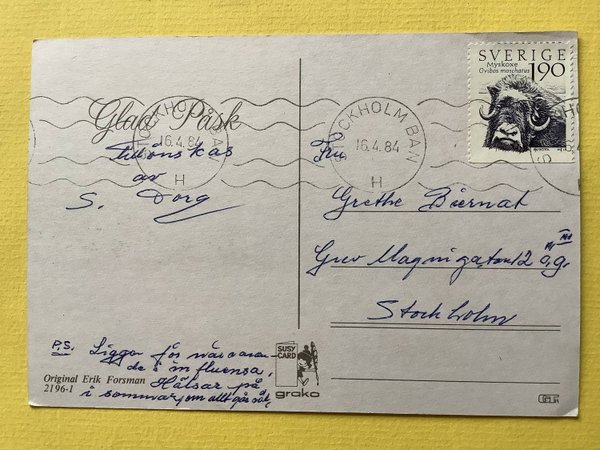 SVERIGE
Myskoxe
Ovibos moschatus
190
STOCKHOLM BAN
16.4.84
H
STOCKHOLM BAN
16.4.84
H
Glad Påsk
tillönskas
av
S. Dorg
P.S. Ligger för närvaran-
de i influensa,
Hälsar på
i sommar, om allt går väl,
Original Erik Forsman
2196-1
SUSY
CARD
grako
Fru
Grethe Biernat
Grev Magnigatan 12 ö.g.
Stockholm